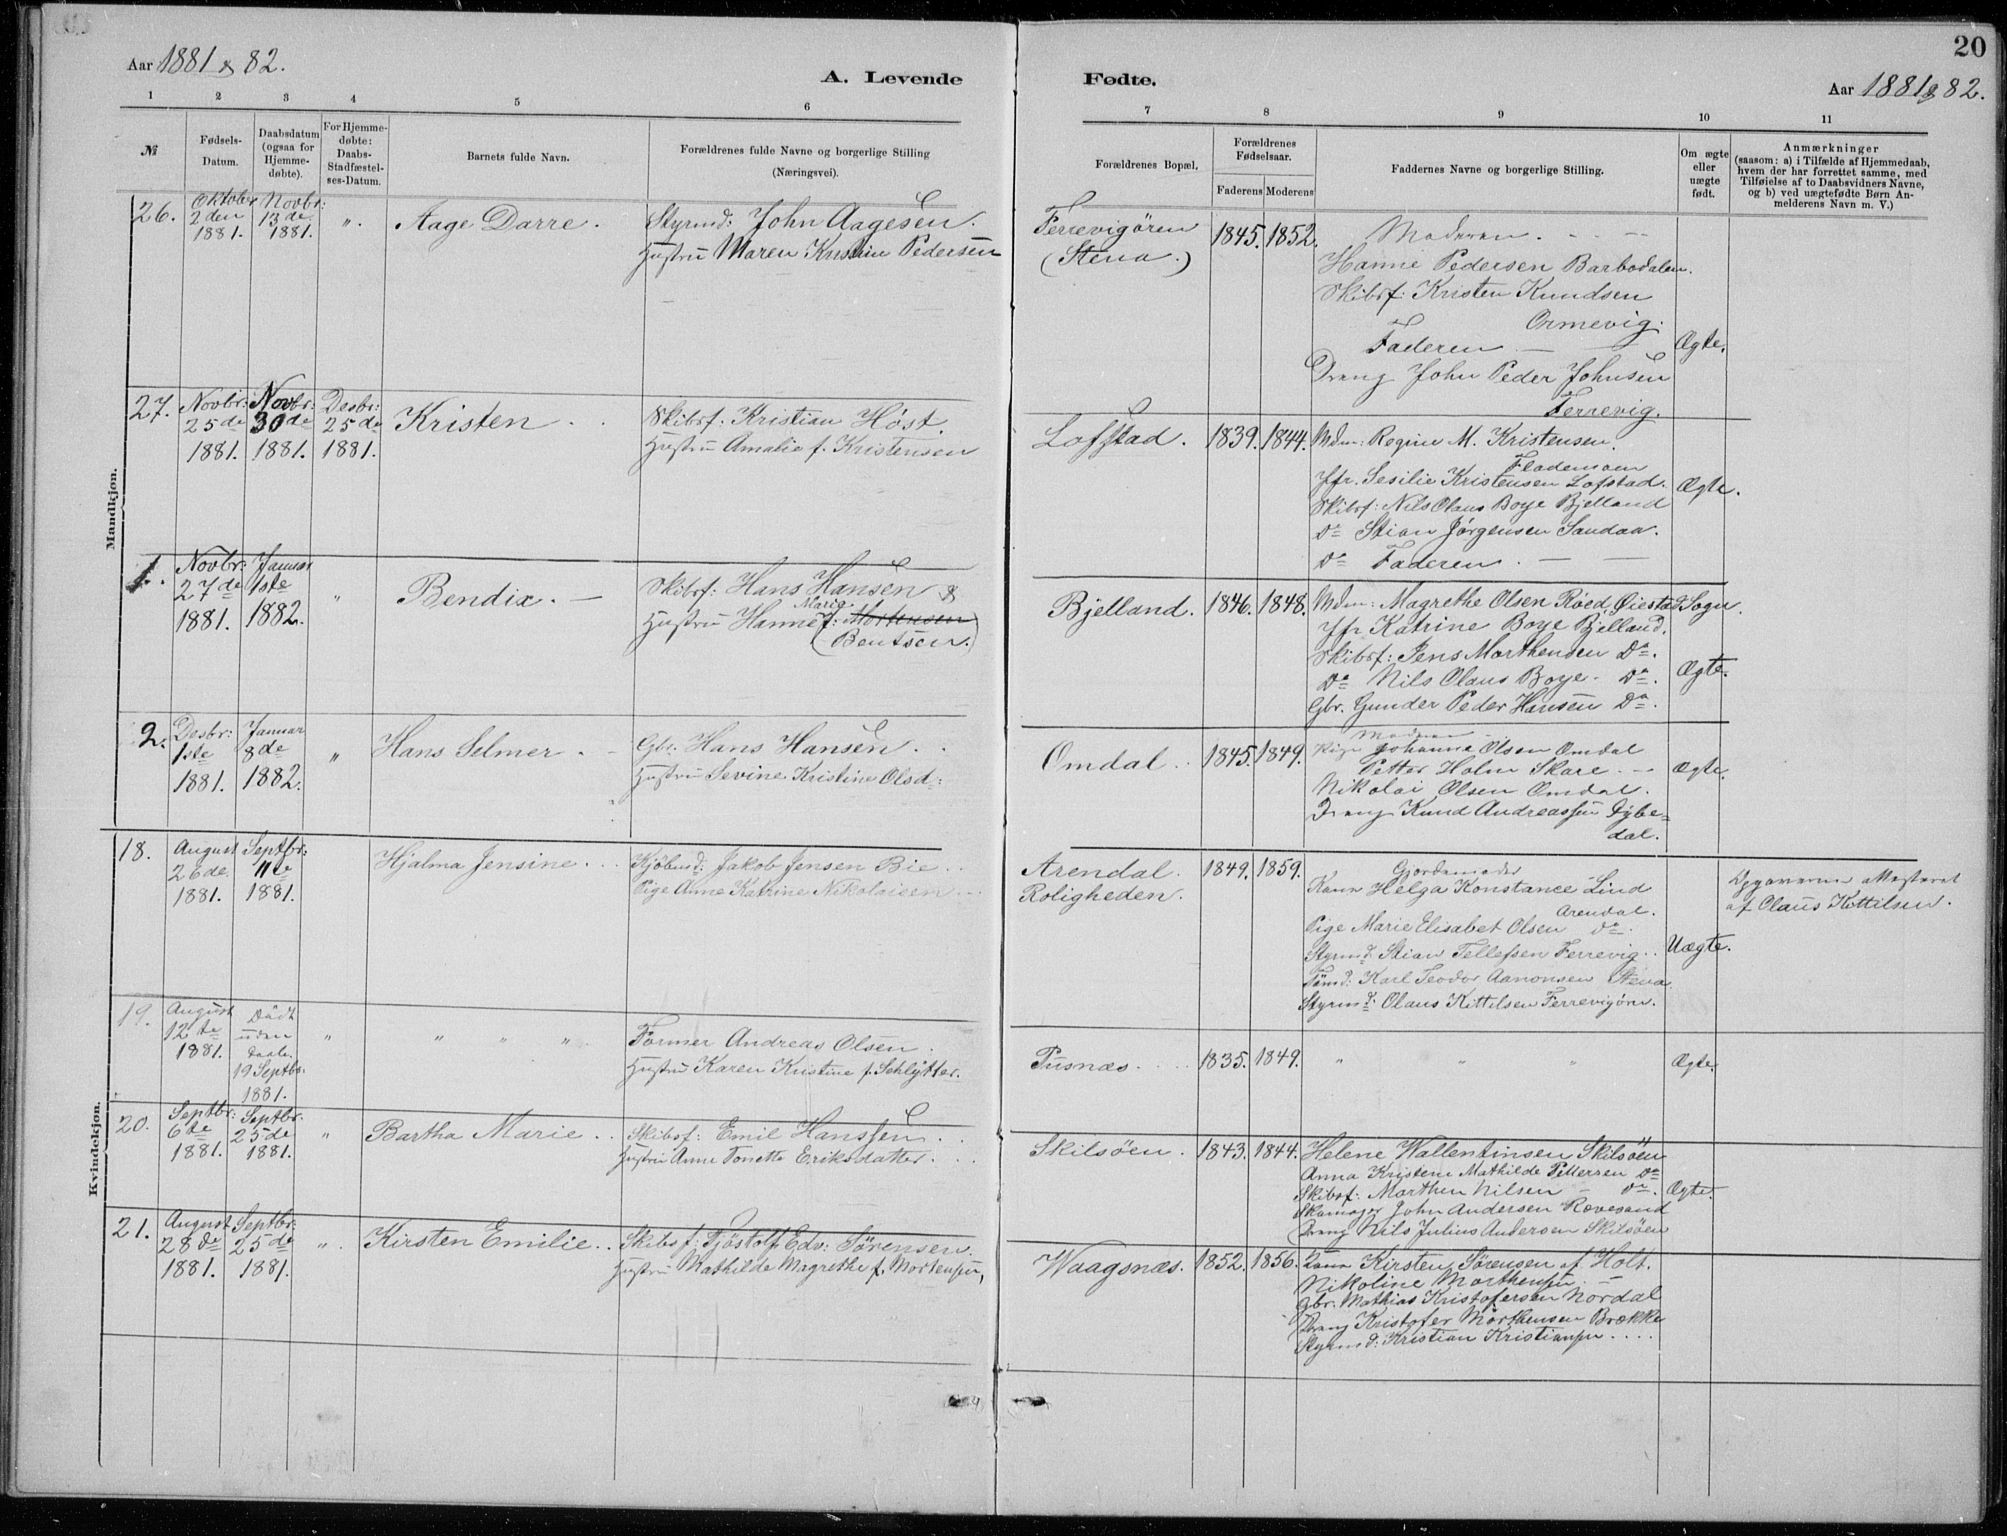 20
Aar 1881 & 82.
A. Levende Fødte.
Aar 1881 & 82.
1 2 3 4 5 6 7 8 9 10 11
№
Fødsels-
Datum.
Daabsdatum
(ogsaa for
Hjemme-
døbte).
For Hjemme-
døbte:
Daabs-
Stadfæstel-
ses-Datum.
Barnets fulde Navn.
Forældrenes fulde Navne og borgerlige Stilling
(Næringsvei).
Forældrenes Bopæl.
Forældrenes
Fødselsaar.
Faderens Moderens
Faddernes Navne og borgerlige Stilling.
Om ægte
eller
uægte
født.
Anmærkninger
(saasom: a) i Tilfælde af Hjemmedaab,
hvem der har forrettet samme, med
Tilføielse af to Daabsvidners Navne,
og b) ved uægtefødte Børn An-
melderens Navn m. V.)
Mandkjøn.
26.
Oktober
2den
1881.
Novbr:
13de
1881.
".
Aage Darre.
Styrmd: John Aagesen.
Hustru Maren Kristine Pedersen
Ferrevigören
(Stena.)
1845. 1852.
Moderen.
Hanne Pedersen Barbodalen.
Skibsf: Kristen Knudsen
Ormevig.
Faderen
Dreng John Peder Johnsen
Ferrevig.
Ægte.
27.
Novbr:
25de
1881.
Novbr:
30de
1881.
Desbr:
25de
1881.
Kristen
Skibsf: Kristian Höst.
Hustru Amalie f. Kristensen
Lofstad.
1839. 1844.
Mdm: Regine M. Kristensen.
Flademoen
Jfr. Sesilie Kristensen Lofstad.
Skibsf: Nils Olaus Boye Bjelland
Do Stian Jörgensen Sandaa.
Do Faderen.
Ægte.
1.
Novbr:
27de
1881.
Januar
1ste
1882.
"
Bendix.
Skibsf: Hans Hansen &
Marie
Hustru Hanne f: Mortensen
(Bentsen.)
Bjelland.
1846. 1848.
Mdm: Magrethe Olsen Röed Öiestad Sogn.
Jfr Katrine Boye Bjelland.
Skibsf: Jens Morthensen Do.
Do Nils Olaus Boye. Do.
Gbr. Gunder Peder Hansen Do.
Ægte.
2.
Desbr:
1ste
1881.
Januar
8de
1882.
"
Hans Selmer.
Gbr: Hans Hansen.
Hustru Sevine Kristine Olsd:
Omdal.
1845. 1849.
Moderen
Pige Johanna Olsen Omdal
Petter Holm Skare.
Nikolai Olsen Omdal.
Dreng Knud Andreassen Dybe-
dal.
Ægte.
Kvindekjøn.
18.
August
26de
1881.
Septbr:
11te
1881.
Hjalma Jensine.
Kjöbmd: Jakob Jensen Bie
Pige Anne Katrine Nikolaisen
Arendal.
Roligheden.
1849. 1859.
Gjordemoder
Kone Helga Konstance Lind
Arendal.
Pige Marie Elisabet Olsen do.
Styrmd: Stian Tellefsen Ferrevig.
Tömd: Karl Teodor Aanonsen Stena
Styrmd: Olaus Kittilsen Ferrevigörn.
Uægte.
Opgaverne attesteret
af Olaus Kittilsen.
19.
August
12te
1881.
Död
uden
daab.
19 Septbr.
1881.
"
" " "
Former Andreas Olsen.
Hustru Karen Kristine f. Schlytter.
Pusnæs.
1835. 1849.
" " "
Ægte.
20.
Septbr:
6te
1881.
Septbr.
25de
1881.
"
Bartha Marie
Skibsf: Emil Hanssen.
Hustru Anne Tonette Eriksdatter.
Skilsöen.
1843. 1844.
Helene Wallentinsen Skilsöen
Anna Kristene Mathilde Pettersen Do
Skibsf: Morthen Nilsen do.
Skomager John Andersen Rævesand
Dreng Nils Julius Andersen Skilsöen
Ægte.
21.
August
28de
1881.
Septbr:
25de
1881.
"
Kirsten Emilie.
Skibsf: Tjöstolf Edv: Sörensen.
Hustru Mathilde Magrethe f. Mortensen,
Waagsnæs.
1852. 1856.
Kone Kirsten Sörensen af Holt.
Nikoline Morthensen.
Gbr. Mathias Kristofersen Nordal
Dreng Kristofer Morthensen Brække
Styrmd: Kristian Kristiansen.